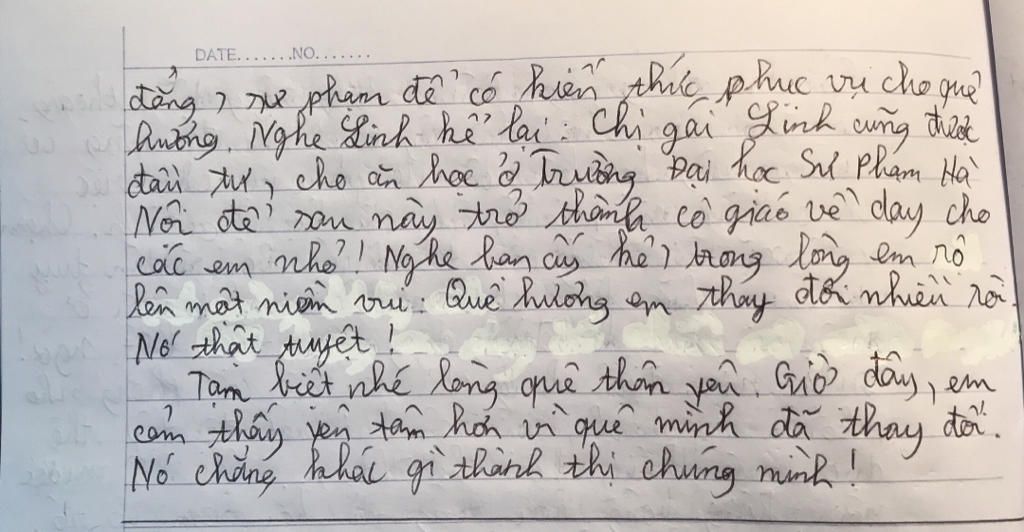 DATE.......NO.......
đẳng, sư phạm để có kiến thức phục vụ cho quê
hương. Nghe Linh kể lại: Chị gái Linh cũng được
đầu tư, cho ăn học ở Trường Đại học Sư Phạm Hà
Nội để sau này trở thành cô giáo về dạy cho
các em nhỏ! Nghe bạn ấy kể, trong lòng em rộ
lên một niềm vui. Quê hương em thay đổi nhiều rồi.
Nó thật tuyệt!
Tạm biết nhé làng quê thân yêu. Giờ đây, em
cảm thấy yên tâm hơn vì quê mình đã thay đổi.
Nó chẳng khác gì thành thị chúng mình!